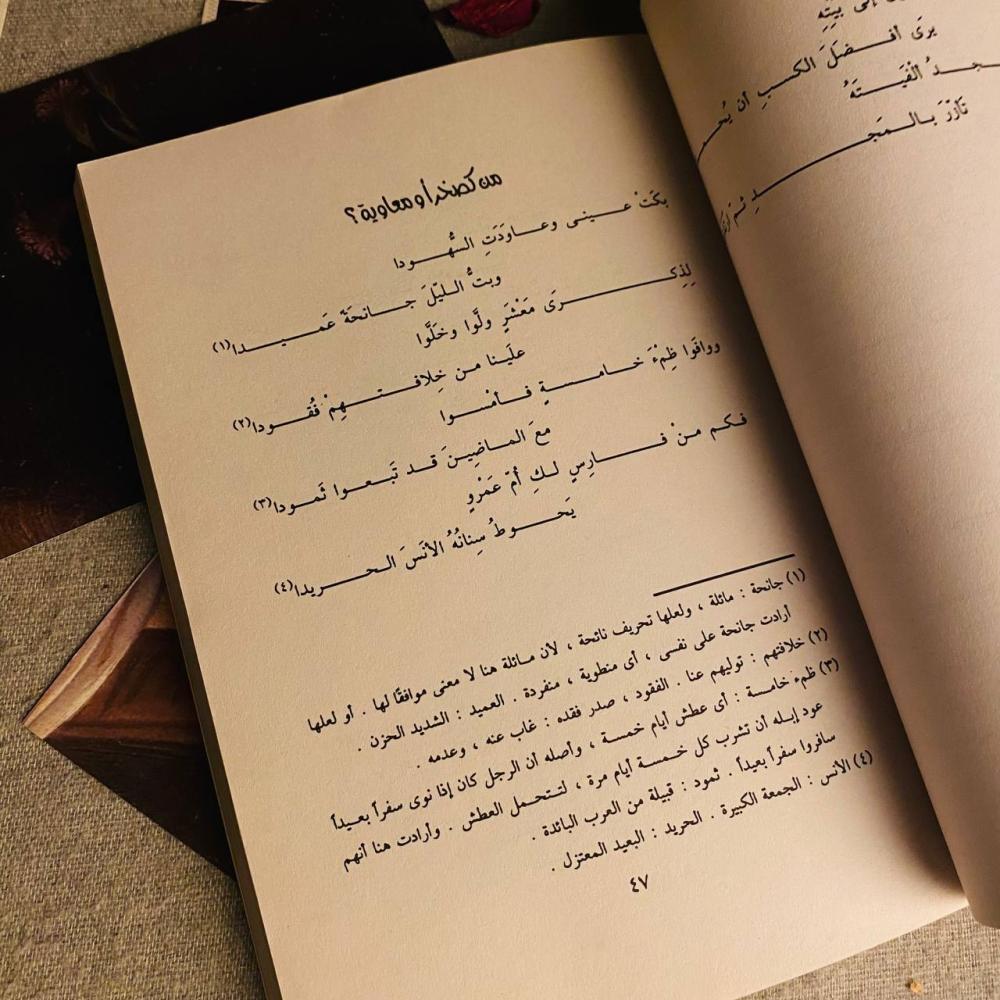 إلى بيتِهِ
يرى أفضلَ الكسبِ أن يُحمـ
ـجدُ ألفيتَهُ
تأزّرَ بالمجدِ ثمّ
من كصخرأ ومعاوية؟
بكَتْ عينى وعاوَدَتِ السُّهودا
وبتُّ الليّلَ جانحَةً عَميدا(١)
لِذِكرَى مَعْشَرٍ ولَّوا وخَلَّوا
علَينا من خِلافتهِمْ فُقودا(٢)
ووافَوا ظِمْءَ خامسةٍ فأمْسوا
معَ الماضِينَ قد تَبعوا ثَمودا(٣)
فكم منْ فارِسٍ لكِ أمّ عَمْروٍ
يَحوطُ سِنانُهُ الأنَسَ الحريدا(٤)
(١) جانحة : مائلة ، ولعلها تحريف نائحة ، لأن مائلة هنا لا معنى موافقًا لها . أو لعلها
أرادت جانحة على نفسى ، أى منطوية ، منفردة . العميد : الشديد الحزن .
(٢) خلافتهم : توليهم عنا . الفقود ، صدر فقده : غاب عنه ، وعدمه .
(٣) ظمء خامسة : أى عطش أيام خمسة ، وأصله أن الرجل كان إذا نوى سفراً بعيداً
عود إبله أن تشرب كل خمسة أيام مرة ، لتتحمل العطش . وأرادت هنا أنهم
سافروا سفراً بعيداً . ثمود : قبيلة من العرب البائدة .
(٤) الأنس : الجمعة الكبيرة . الحريد : البعيد المعتزل .
٤٧